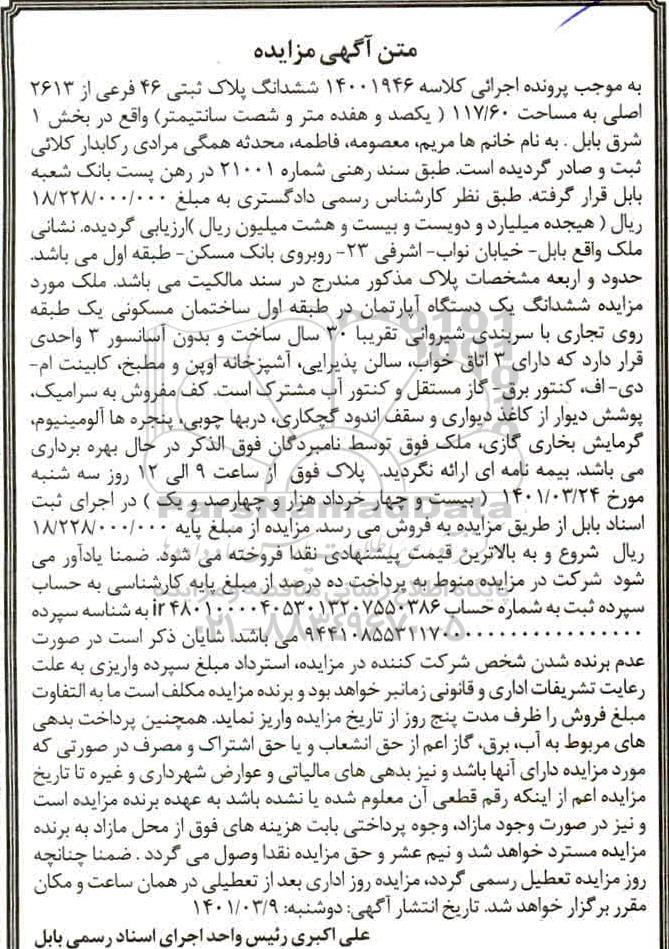 متن آگهی مزایده
به موجب پرونده اجرائی کلاسه ۱۴۰۰۱۹۴۶ ششدانگ پلاک ثبتی ۴۶ فرعی از ۲۶۱۳
اصلی به مساحت ۱۱۷/۶۰ ( یکصد و هفده متر و شصت سانتیمتر) واقع در بخش ۱
شرق بابل . به نام خانم ها مریم، معصومه، فاطمه، محدثه همگی مرادی رکابدار کلائی
ثبت و صادر گردیده است. طبق سند رهنی شماره ۲۱۰۰۱ در رهن پست بانک شعبه
بابل قرار گرفته. طبق نظر کارشناس رسمی دادگستری به مبلغ ۱۸/۲۲۸/۰۰۰/۰۰۰
ریال ( هیجده میلیارد و دویست و بیست و هشت میلیون ریال )ارزیابی گردیده. نشانی
ملک واقع بابل- خیابان نواب- اشرفی ۲۳- روبروی بانک مسکن- طبقه اول می باشد.
حدود و اربعه مشخصات پلاک مذکور مندرج در سند مالکیت می باشد. ملک مورد
مزایده ششدانگ یک دستگاه آپارتمان در طبقه اول ساختمان مسکونی یک طبقه
روی تجاری با سربندی شیروانی تقریبا ۳۰ سال ساخت و بدون آسانسور ۳ واحدی
قرار دارد که دارای ۳ اتاق خواب، سالن پذیرایی، آشپزخانه اوپن و مطبخ، کابینت ام-
دی- اف، کنتور برق- گاز مستقل و کنتور آب مشترک است. کف مفروش به سرامیک،
پوشش دیوار از کاغذ دیواری و سقف اندود گچکاری، دربها چوبی، پنجره ها آلومینیوم،
گرمایش بخاری گازی، ملک فوق توسط نامبردگان فوق الذکر در حال بهره برداری
می باشد. بیمه نامه ای ارائه نگردید. پلاک فوق از ساعت ۹ الی ۱۲ روز سه شنبه
مورخ ۱۴۰۱/۰۳/۲۴ ( بیست و چهار خرداد هزار و چهارصد و یک ) در اجرای ثبت
اسناد بابل از طریق مزایده به فروش می رسد. مزایده از مبلغ پایه ۱۸/۲۲۸/۰۰۰/۰۰۰
ریال شروع و به بالاترین قیمت پیشنهادی نقدا فروخته می شود. ضمنا یادآور می
شود شرکت در مزایده منوط به پرداخت ده درصد از مبلغ پایه کارشناسی به حساب
سپرده ثبت به شماره حساب ir ۴۸۰۱۰۰۰۰۴۰۵۳۰۱۳۲۰۷۵۵۰۳۸۶ به شناسه سپرده
می باشد. شایان ذکر است در صورت
عدم برنده شدن شخص شرکت کننده در مزایده، استرداد مبلغ سپرده واریزی به علت
رعایت تشریفات اداری و قانونی زمانبر خواهد بود و برنده مزایده مکلف است ما به التفاوت
مبلغ فروش را ظرف مدت پنج روز از تاریخ مزایده واریز نماید. همچنین پرداخت بدهی
های مربوط به آب، برق، گاز اعم از حق انشعاب و یا حق اشتراک و مصرف در صورتی که
مورد مزایده دارای آنها باشد و نیز بدهی های مالیاتی و عوارض شهرداری و غیره تا تاریخ
مزایده اعم از اینکه رقم قطعی آن معلوم شده یا نشده باشد به عهده برنده مزایده است
و نیز در صورت وجود مازاد، وجوه پرداختی بابت هزینه های فوق از محل مازاد به برنده
مزایده مسترد خواهد شد و نیم عشر و حق مزایده نقدا وصول می گردد . ضمنا چنانچه
روز مزایده تعطیل رسمی گردد، مزایده روز اداری بعد از تعطیلی در همان ساعت و مکان
مقرر برگزار خواهد شد. تاریخ انتشار آگهی: دوشنبه: ۱۴۰۱/۰۳/۹
علی اکبری رئیس واحد اجرای اسناد رسمی بابل
ParsNamadData
۰۲۱-۸۸۳۴۹۶۷۰-۵